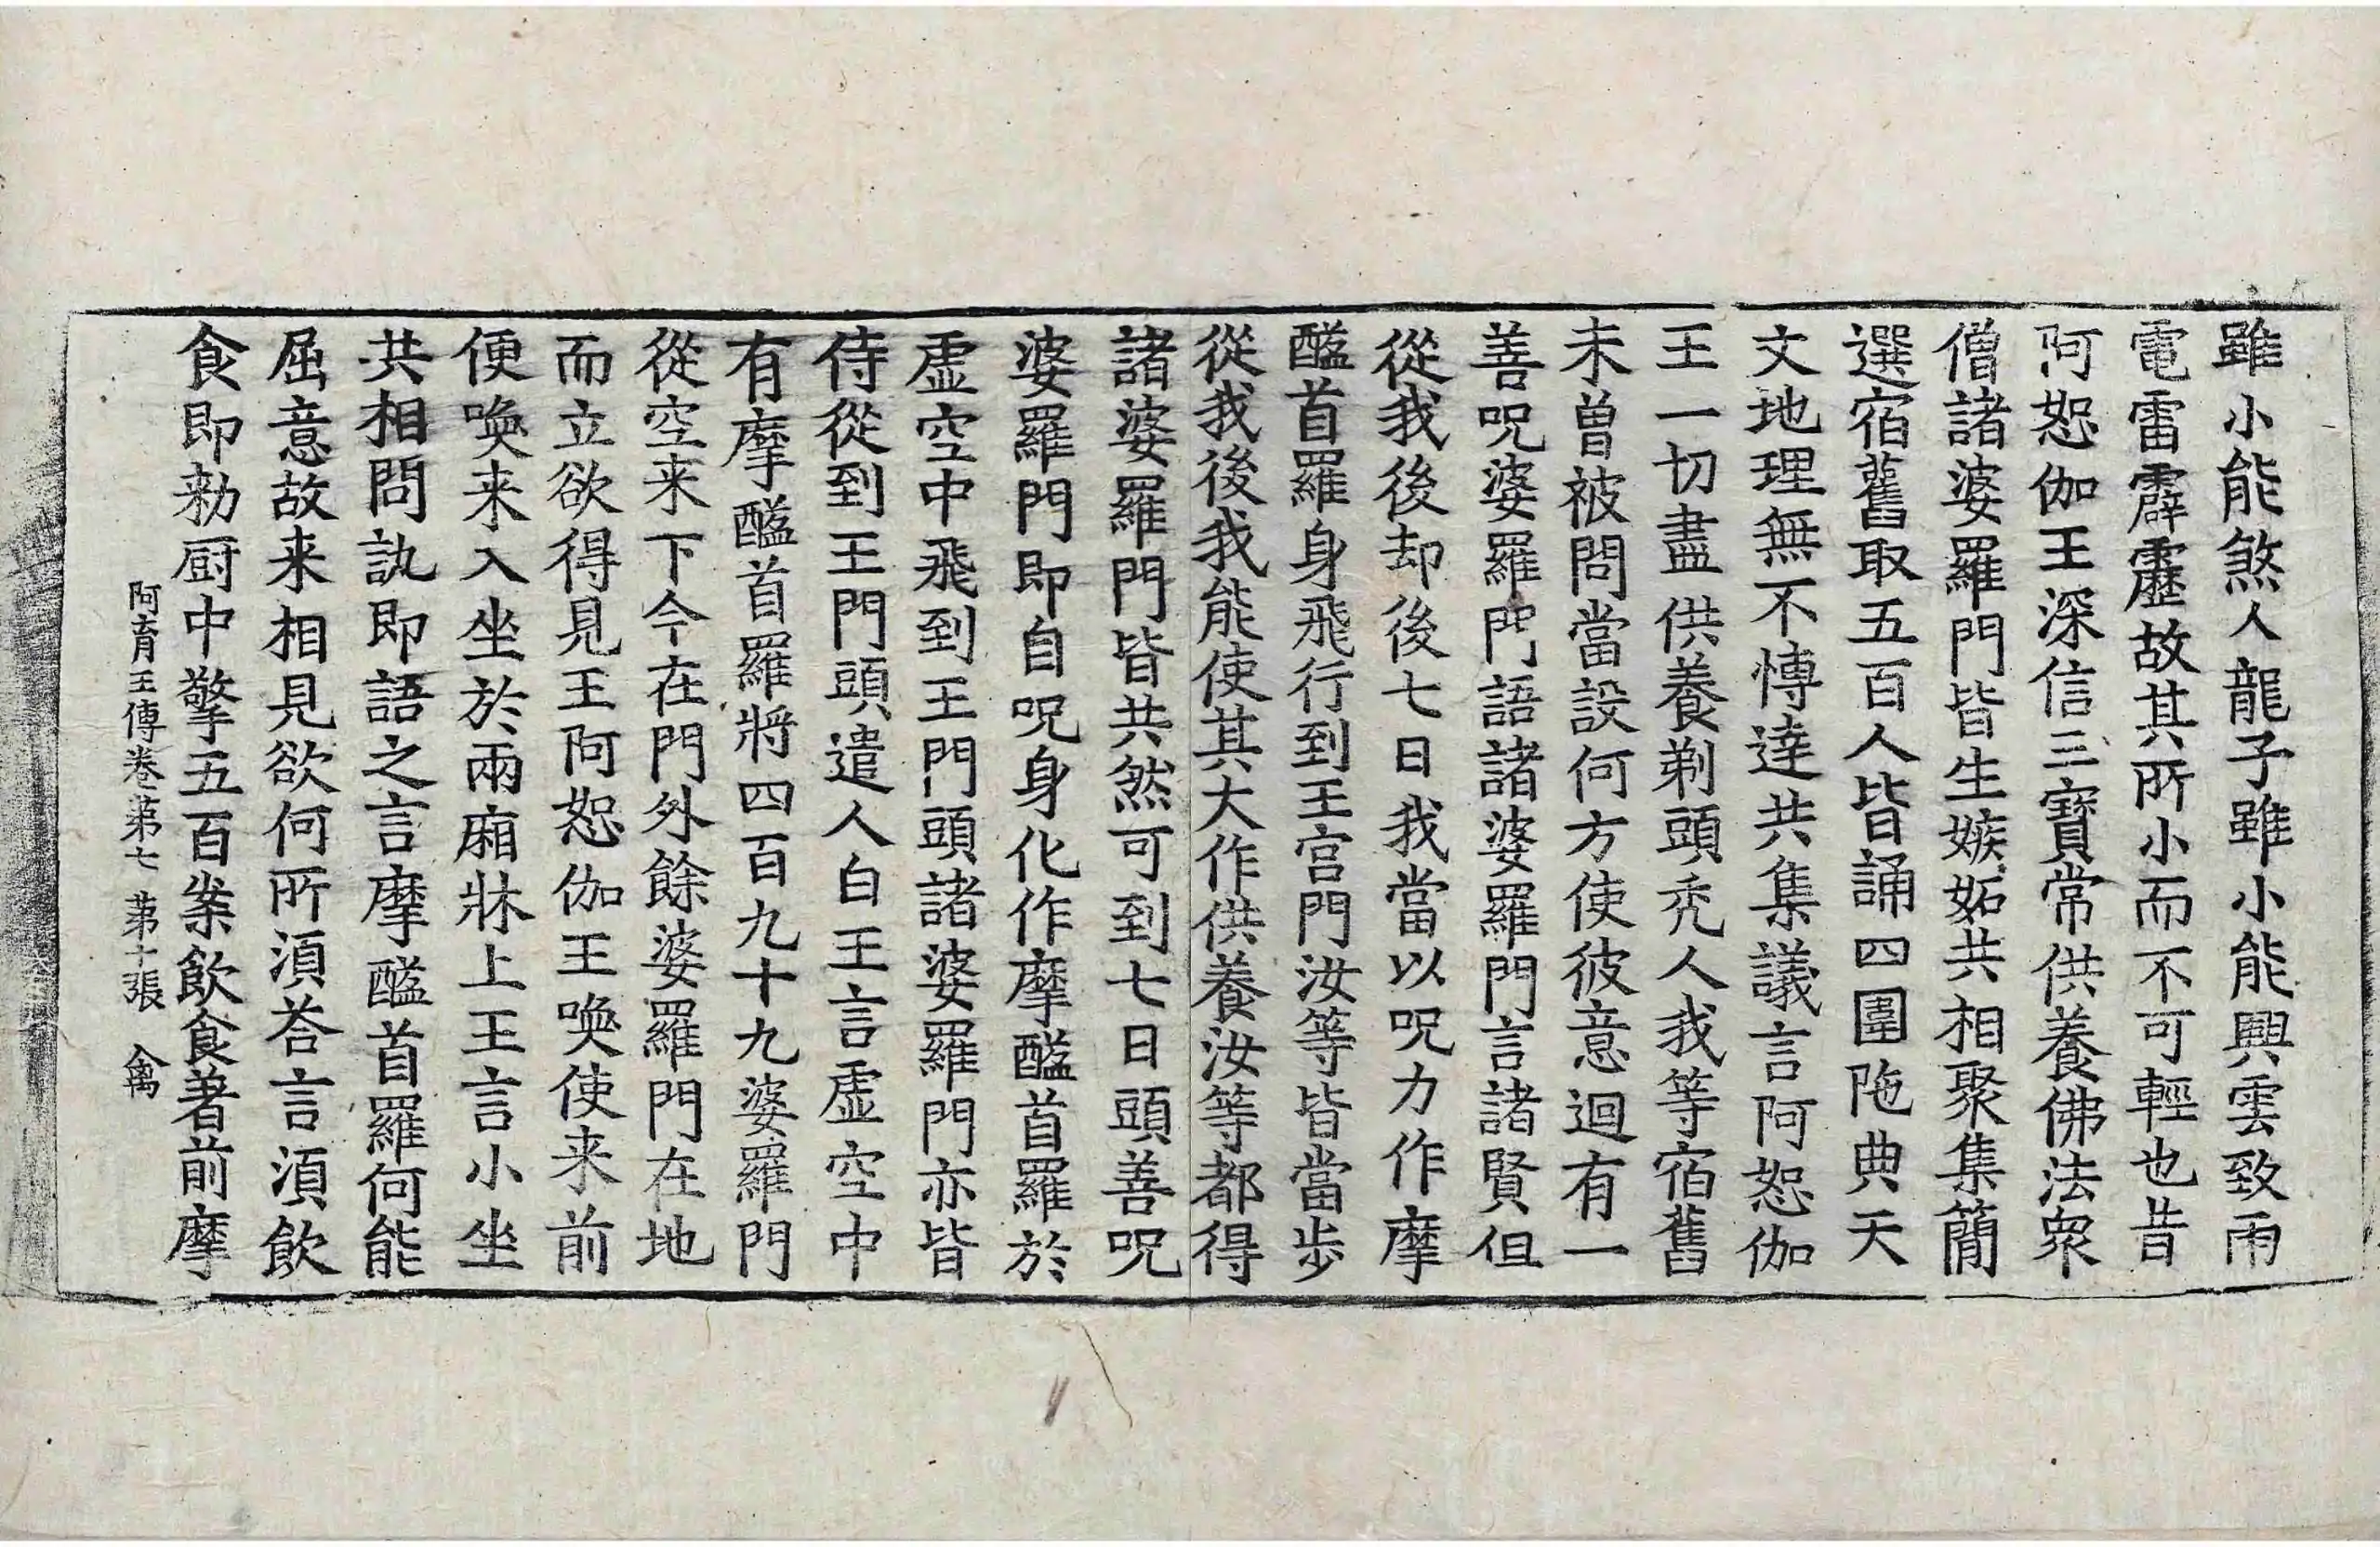 雖小能煞人龍子雖小能興雲致雨
電雷霹靂故其所小而不可輕也昔
阿恕伽王深信三寶常供養佛法衆
僧諸婆羅門皆生嫉妬共相聚集簡
選宿舊取五百人皆誦四圍陁典天
文地理無不博達共集議言阿恕伽
王一切盡供養剃頭禿人我等宿舊
未曽被問當設何方使彼意迴有一
善呪婆羅門語諸婆羅門言諸賢但
從我後却後七日我當以呪力作摩
醯首羅身飛行到王宮門汝等皆當步
從我後我能使其大作供養汝等都得
諸婆羅門皆共然可到七日頭善呪
婆羅門即自呪身化作摩醯首羅於
虛空中飛到王門頭諸婆羅門亦皆
侍從到王門頭遣人白王言虛空中
有摩醯首羅將四百九十九婆羅門
從空来下今在門外餘婆羅門在地
而立欲得見王阿恕伽王喚使来前
便喚来入坐於兩廂牀上王言小坐
共相問訊即語之言摩醯首羅何能
屈意故来相見欲何所湏荅言湏飲
食即勑厨中擎五百案飲食著前摩
阿育王傳卷第七 第十張 禽